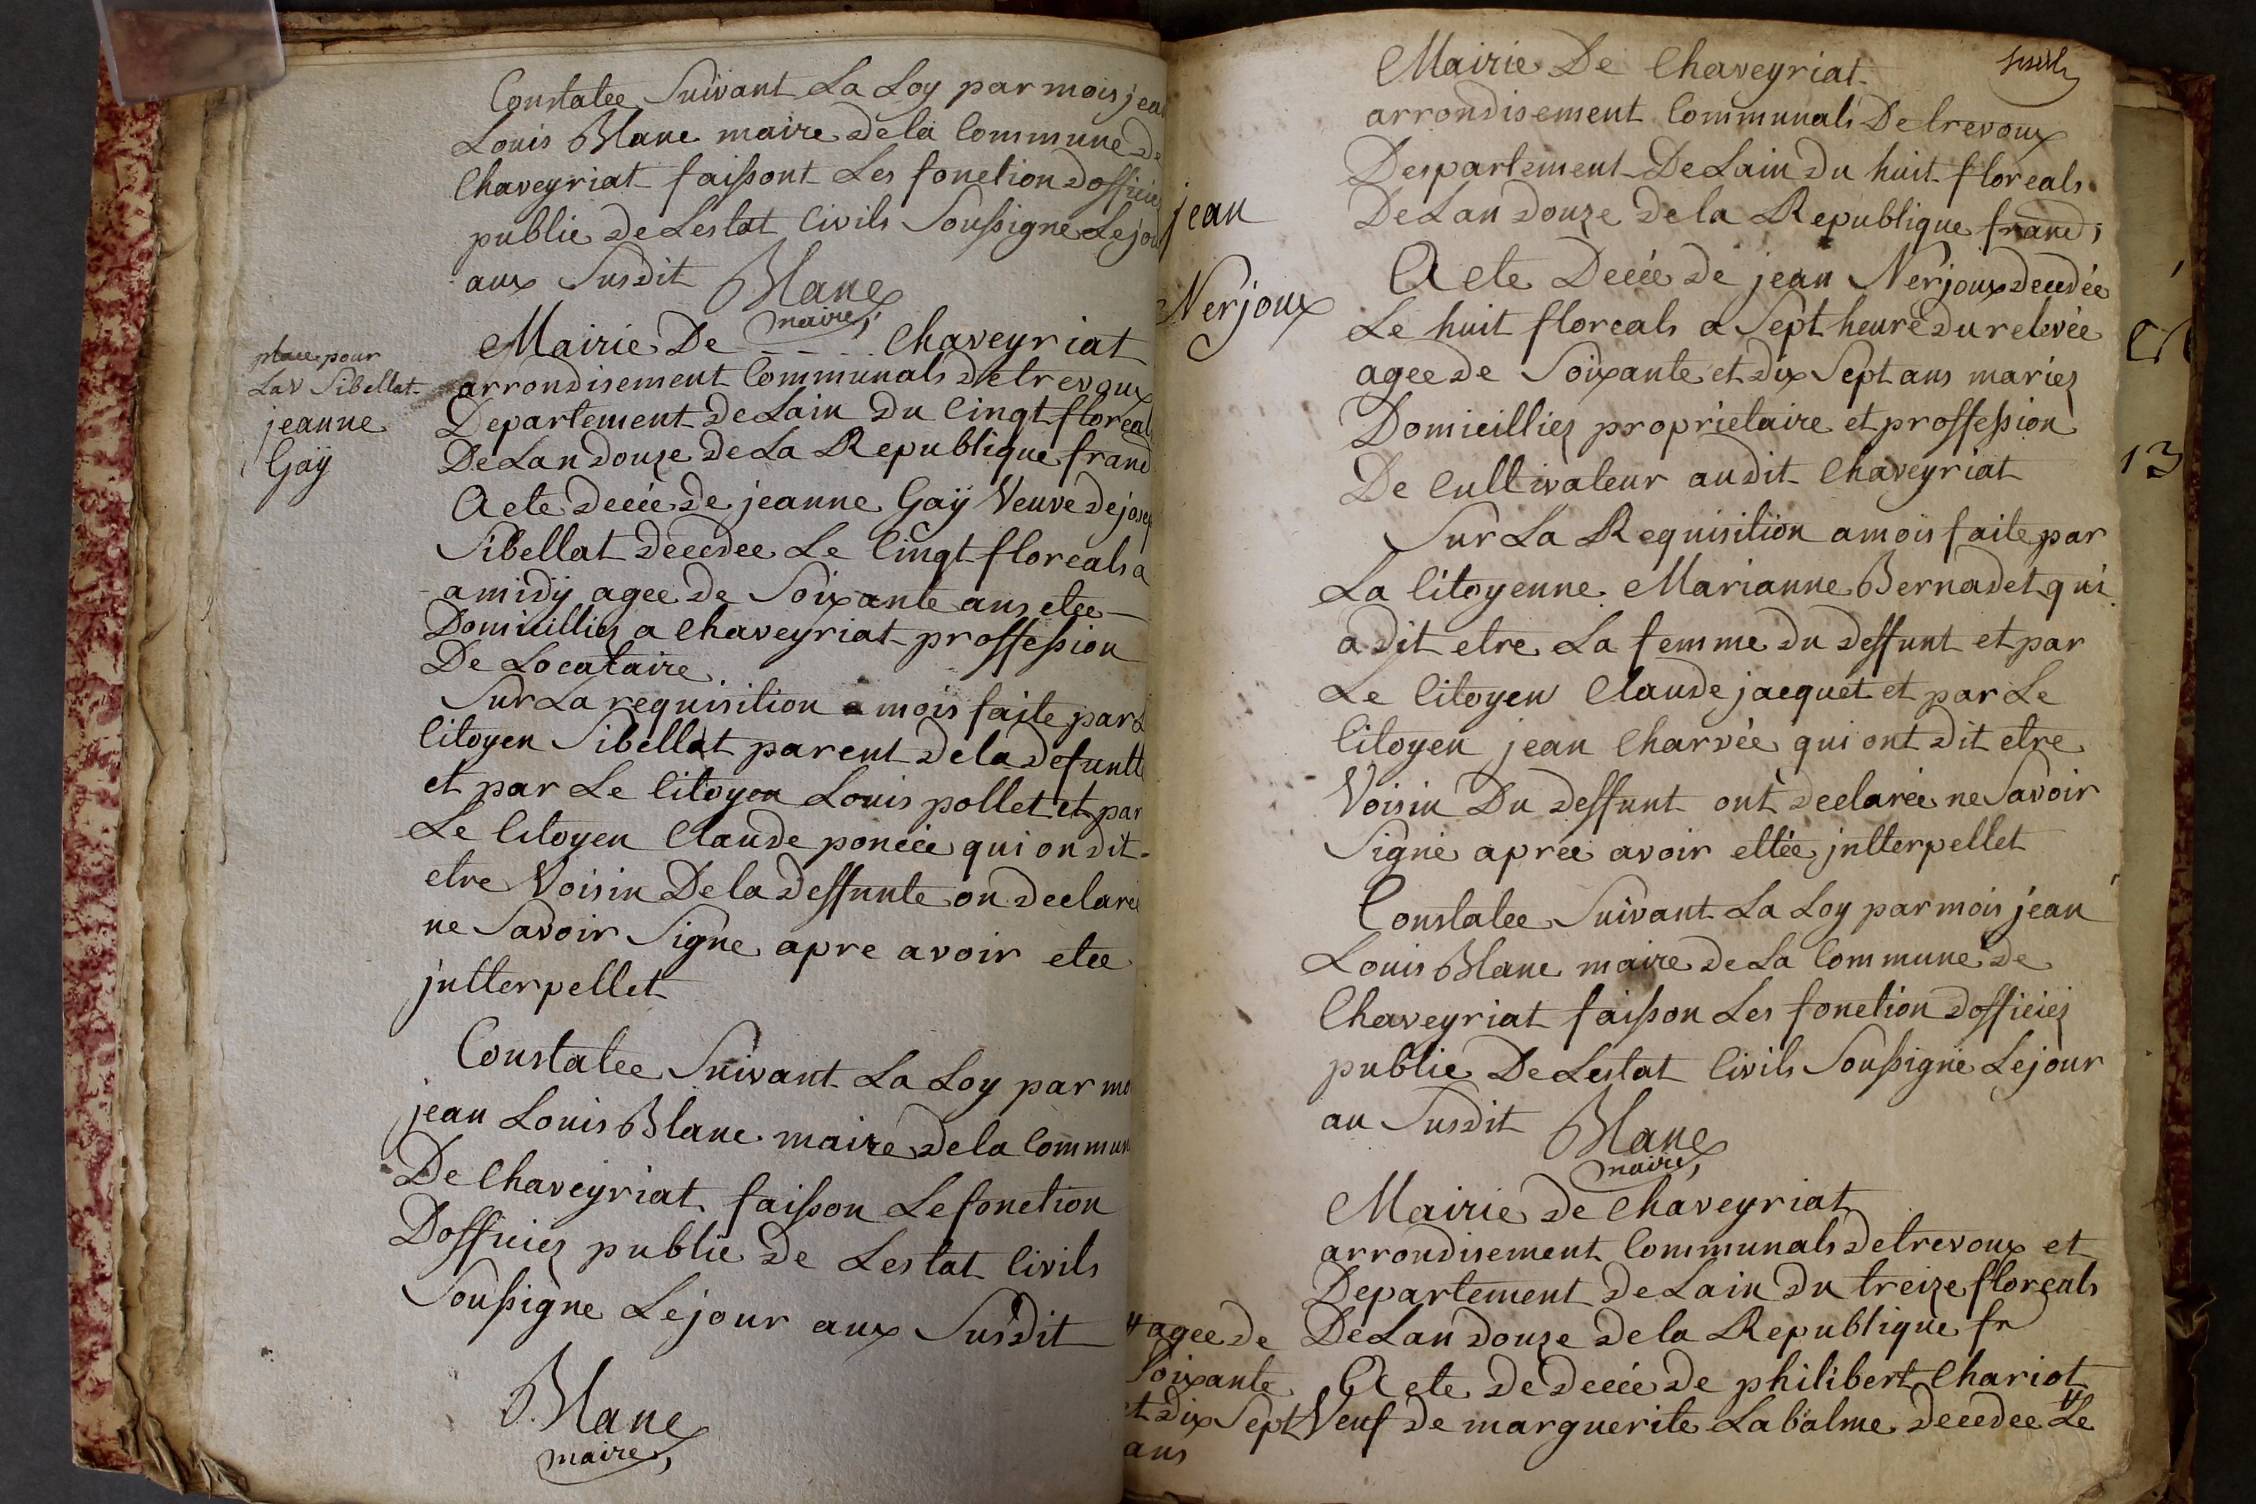 Constatee Suivant La Loy par mois jea
Louis Blanc maire dela Commune de
Chaveyriat faissont Les fonction dofficie
public de Lestat Civils Soussigne Lejou
aux Susdit Blanc
maire
Mairie De - - - . Chaveyriat
place pour
Lav Sibellat
jeanne
Gaÿ
arrondisement Communals detrevoux
Departement de Lain du Cinqt floreal
De Lan douze de La Republique franc
Acte decée de jeanne Gaÿ Veuve de josep
Sibellat decedee Le Cinqt floreals a
amidÿ agee de Soixante ans etee
Domicilliez a Chaveyriat proffession
De Locataire
Sur La requisition a mois faite par L
Citoyen Sibellat parent dela defuntte
et par Le Citoyen Louis pollet et par
Le Citoyen Claude poncée qui on dit
etre Voisin De la deffunte on declaré
ne Savoir Signe apre avoir etee
jntterpellet
Constatee Suivant La Loy par mo
jean Louis Blanc maire dela Commun
De Chaveyriat faisson Le fonction
Dofficiez public de Lestat Civils
Soussigne Lejour aux Susdit
Blanc
maire
Mairie De Chaveyriat
arrondisement Communals Detrevoux
Despartement De Lain du huit floreals
De Lan douze de la Republique franc
jean
Nerjoux
Acte Decée de jean Nerjoux decedée
Le huit floreals a Sept heure du relevée
agee de Soixante et dix Sept ans mariez
Domicilliez proprietaire et proffession
De Cultivateur audit Chaveyriat
Sur La Requisition a mois faite par
La Citoyenne Marianne Bernadet qui
a dit etre La femme du deffunt et par
Le Citoyen Claude jacquet et par Le
Citoyen jean Charvée qui ont dit etre
Voisin Du deffunt ont declarée ne Savoir
Signé aprée avoir ettée jntterpellet
Constatee Suivant La Loy par mois jean
Louis Blanc maire de La Commune de
Chaveyriat faisson Les fonction dofficiez
public De Lestat Civils Soussigne Lejour
au Susdit Blanc
maire
Mairie de Chaveyriat
arrondisement Communals detrevoux et
Departement de Lain du treize floreals
De Lan douze dela Republique fr
Acte de decée de philibert Chariot
Veuf de marguerite Labalme decedee # Le
# agee de
Soixante
et dix Sept
ans
13